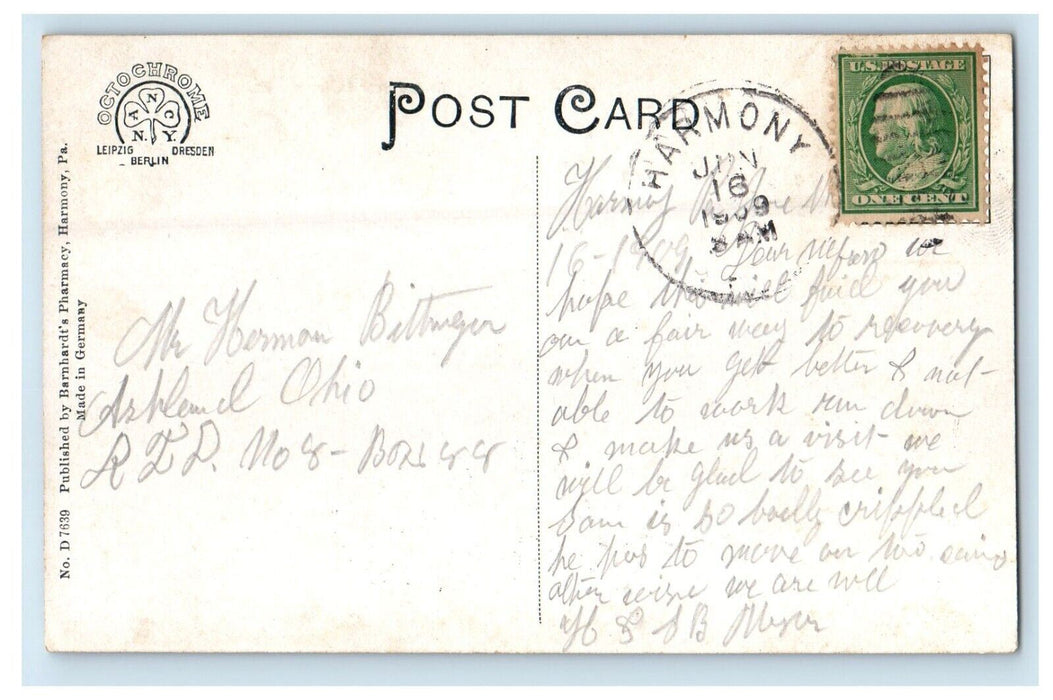 OCTOCHROME
A N C
N. Y.
LEIPZIG DRESDEN
- BERLIN
POST CARD
HARMONY
JUN
16
1909
8 AM
U.S. POSTAGE
ONE CENT
No. D 7639 Published by Barnhardt's Pharmacy, Harmony, Pa.
Made in Germany
Mr Herman Bittmeyer
Ashland Ohio
R F D. No 8 - Box 88
Harmony Pa June
16-1909 Dear we
hope this will find you
on a fair way to recovery
when you get better & not
able to work run down
& make us a visit we
will be glad to see you
Sam is so badly crippled
he has to move on two
other wise we are well
H & S B Meyer